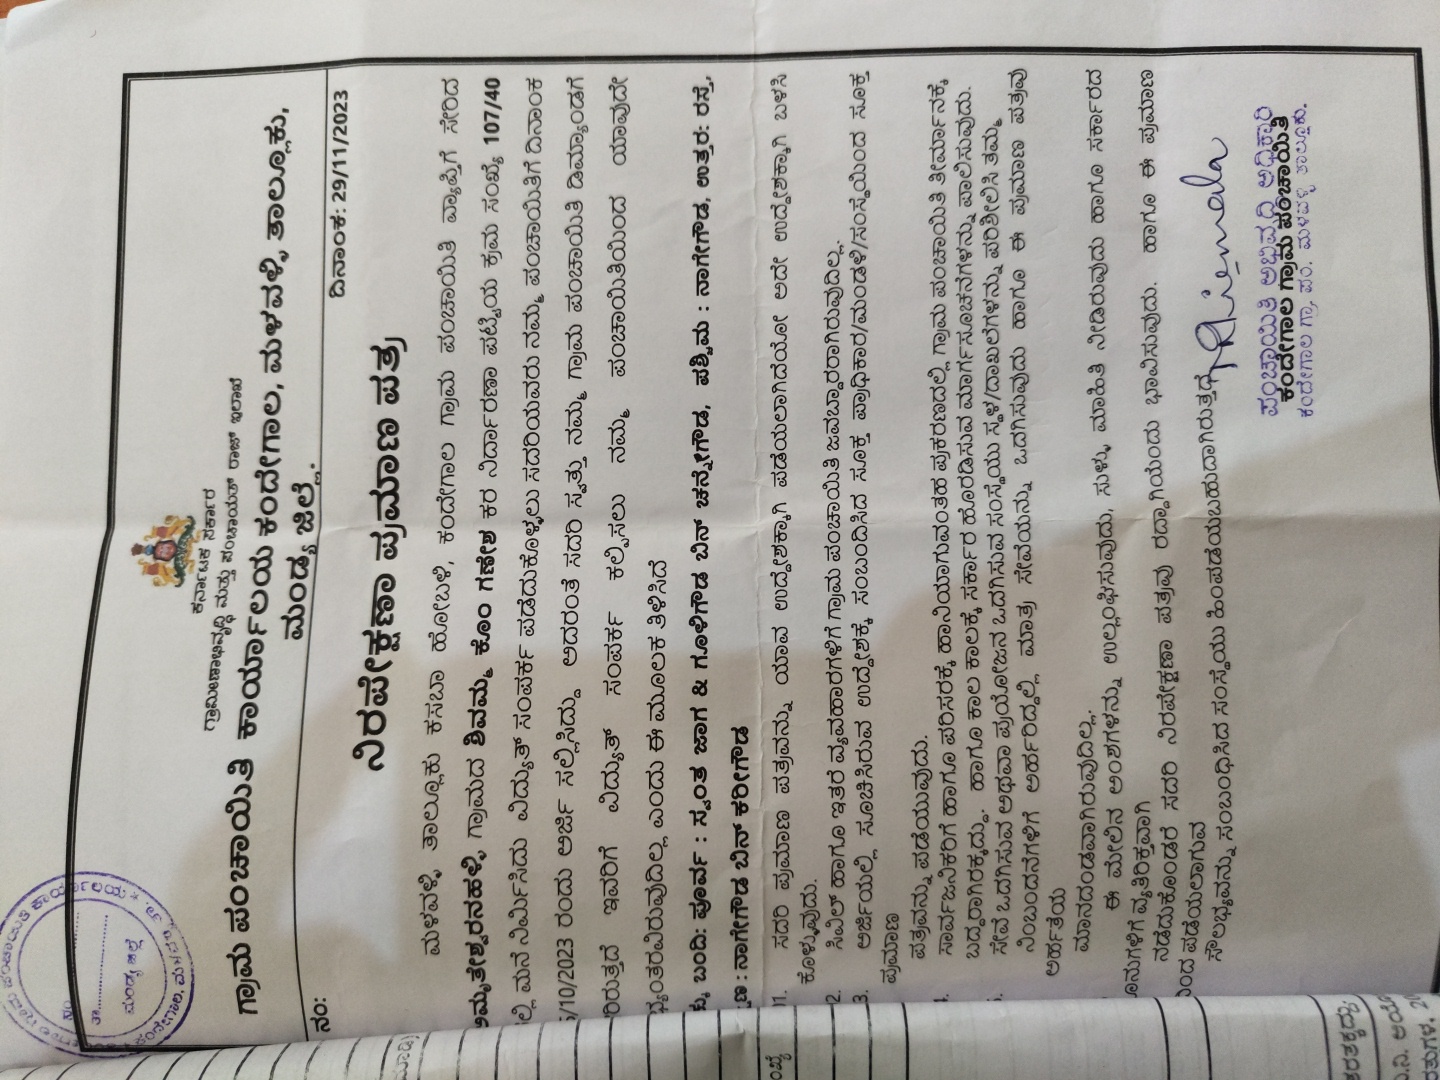 ಕರ್ನಾಟಕ ಸರ್ಕಾರ
ಗ್ರಾಮೀಣಾಭಿವೃದ್ಧಿ ಮತ್ತು ಪಂಚಾಯತ್ ರಾಜ್ ಇಲಾಖೆ
ಗ್ರಾಮ ಪಂಚಾಯಿತಿ ಕಾರ್ಯಾಲಯ ಕಂದೇಗಾಲ, ಮಳವಳ್ಳಿ ತಾಲ್ಲೂಕು,
ಮಂಡ್ಯ ಜಿಲ್ಲೆ.
ನಂ: ದಿನಾಂಕ: 29/11/2023
ನಿರಪೇಕ್ಷಣಾ ಪ್ರಮಾಣ ಪತ್ರ
ಮಳವಳ್ಳಿ ತಾಲ್ಲೂಕು ಕಸಬಾ ಹೋಬಳಿ, ಕಂದೇಗಾಲ ಗ್ರಾಮ ಪಂಚಾಯಿತಿ ವ್ಯಾಪ್ತಿಗೆ ಸೇರಿದ
ಅಮೃತೇಶ್ವರನಹಳ್ಳಿ ಗ್ರಾಮದ ಶಿವಮ್ಮ ಕೊಂ ಗಣೇಶ ಕರ ನಿರ್ದಾರಣಾ ಪಟ್ಟಿಯ ಕ್ರಮ ಸಂಖ್ಯೆ 107/40
ಮನೆ ನಿರ್ಮಿಸಿದು ವಿದ್ಯುತ್ ಸಂಪರ್ಕ ಪಡೆದುಕೊಳ್ಳಲು ಸದರಿಯವರು ನಮ್ಮ ಪಂಚಾಯಿತಿಗೆ ದಿನಾಂಕ
/10/2023 ರಂದು ಅರ್ಜಿ ಸಲ್ಲಿಸಿದ್ದು ಅದರಂತೆ ಸದರಿ ಸ್ವತ್ತು ನಮ್ಮ ಗ್ರಾಮ ಪಂಚಾಯಿತಿ ಡಿಮ್ಯಾಂಡಗೆ
ಇವರಿಗೆ ವಿದ್ಯುತ್ ಸಂಪರ್ಕ ಕಲ್ಪಿಸಲು ನಮ್ಮ ಪಂಚಾಯಿತಿಯಿಂದ ಯಾವುದೇ
ಎಂದು ಈ ಮೂಲಕ ತಿಳಿಸಿದೆ
ಬಂದಿ: ಪೂರ್ವ : ಸ್ವಂತ ಜಾಗ & ಗೂಳಿಗೌಡ ಬಿನ್ ಚನ್ನೇಗೌಡ, ಪಶ್ಚಿಮ : ನಾಗೇಗೌಡ, ಉತ್ತರ: ರಸ್ತೆ,
: ನಾಗೇಗೌಡ ಬಿನ್ ಕರೀಗೌಡ
1. ಸದರಿ ಪ್ರಮಾಣ ಪತ್ರವನ್ನು ಯಾವ ಉದ್ದೇಶಕ್ಕಾಗಿ ಪಡೆಯಲಾಗಿದೆಯೋ ಅದೇ ಉದ್ದೇಶಕ್ಕಾಗಿ ಬಳಸಿ
ಕೊಳ್ಳುವುದು.
2. ಸಿವಿಲ್ ಹಾಗೂ ಇತರೆ ವ್ಯವಹಾರಗಳಿಗೆ ಗ್ರಾಮ ಪಂಚಾಯಿತಿ ಜವಬ್ದಾರರಾಗಿರುವುದಿಲ್ಲ.
3. ಅರ್ಜಿಯಲ್ಲಿ ಸೂಚಿಸಿರುವ ಉದ್ದೇಶಕ್ಕೆ ಸಂಬಂದಿಸಿದ ಸೂಕ್ತ ಪ್ರಾಧಿಕಾರ/ಮಂಡಳಿ/ಸಂಸ್ಥೆಯಿಂದ ಸೂಕ್ತ
ಪ್ರಮಾಣ
ಪತ್ರವನ್ನು ಪಡೆಯುವುದು.
ಸಾರ್ವಜನಿಕರಿಗೆ ಹಾಗೂ ಪರಿಸರಕ್ಕೆ ಹಾನಿಯಾಗುವಂತಹ ಪ್ರಕರಣದಲ್ಲಿ ಗ್ರಾಮ ಪಂಚಾಯಿತಿ ತೀರ್ಮಾನಕ್ಕೆ
ಬದ್ದರಾಗಿರತಕ್ಕದ್ದು. ಹಾಗೂ ಕಾಲ ಕಾಲಕ್ಕೆ ಸರ್ಕಾರ ಹೊರಡಿಸುವ ಮಾರ್ಗಸೂಚನೆಗಳನ್ನು ಪಾಲಿಸುವುದು.
ಸೇವೆ ಒದಗಿಸುವ ಅಥವಾ ಪ್ರಯೋಜನ ಒದಗಿಸುವ ಸಂಸ್ಥೆಯು ಸ್ಥಳ/ದಾಖಲೆಗಳನ್ನು ಪರಿಶೀಲಿಸಿ ತಮ್ಮ
ನಿಂಬಂದನೆಗಳಿಗೆ ಅರ್ಹರಿದ್ದಲ್ಲಿ ಮಾತ್ರ ಸೇವೆಯನ್ನು ಒದಗಿಸುವುದು ಹಾಗೂ ಈ ಪ್ರಮಾಣ ಪತ್ರವು
ಅರ್ಹತೆಯ
ಮಾನದಂಡವಾಗಿರುವುದಿಲ್ಲ.
ಈ ಮೇಲಿನ ಅಂಶಗಳನ್ನು ಉಲ್ಲಂಘಿಸುವುದು, ಸುಳ್ಳು ಮಾಹಿತಿ ನೀಡಿರುವುದು ಹಾಗೂ ಸರ್ಕಾರದ
ವ್ಯತಿರಿಕ್ತವಾಗಿ
ನಡೆದುಕೊಂಡರೆ ಸದರಿ ನಿರಪೇಕ್ಷಣಾ ಪತ್ರವು ರದ್ದಾಗಿಯೆಂದು ಭಾವಿಸುವುದು. ಹಾಗೂ ಈ ಪ್ರಮಾಣ
ಪಡೆಯಲಾಗುವ
ಸೌಲಭ್ಯವನ್ನು ಸಂಬಂಧಿಸಿದ ಸಂಸ್ಥೆಯು ಹಿಂಪಡೆಯಬಹುದಾಗಿರುತ್ತದೆ
ಪಂಚಾಯಿತಿ ಅಭಿವೃದ್ಧಿ ಅಧಿಕಾರಿ
ಕಂದೇಗಾಲ ಗ್ರಾಮ ಪಂಚಾಯಿತಿ
ಕಂದೇಗಾಲ ಗ್ರಾ. ಪಂ. ಮಳವಳ್ಳಿ ತಾಲ್ಲೂಕು.